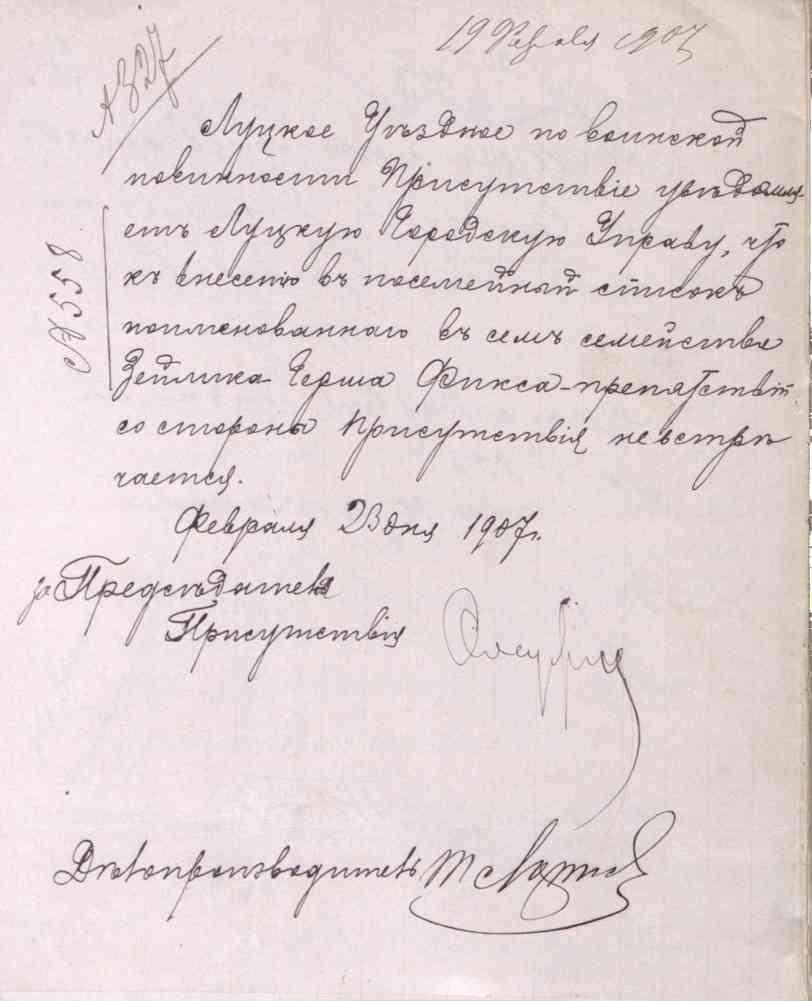 19 Февраля 1907
№ 327
Луцкое Уѣздное по воинской
повинности Присутствіе увѣдомля-
етъ Луцкую Городскую Управу, что
№ 558
къ внесенію въ посемейный списокъ
поименованнаго въ семъ семейства
Зейлика-Герша Фикса-препятствій
со стороны Присутствія не встрѣ
чается.
Февраля 23 дня 1907 г.
за Предсѣдателя
Присутствія
Дѣлопроизводитель